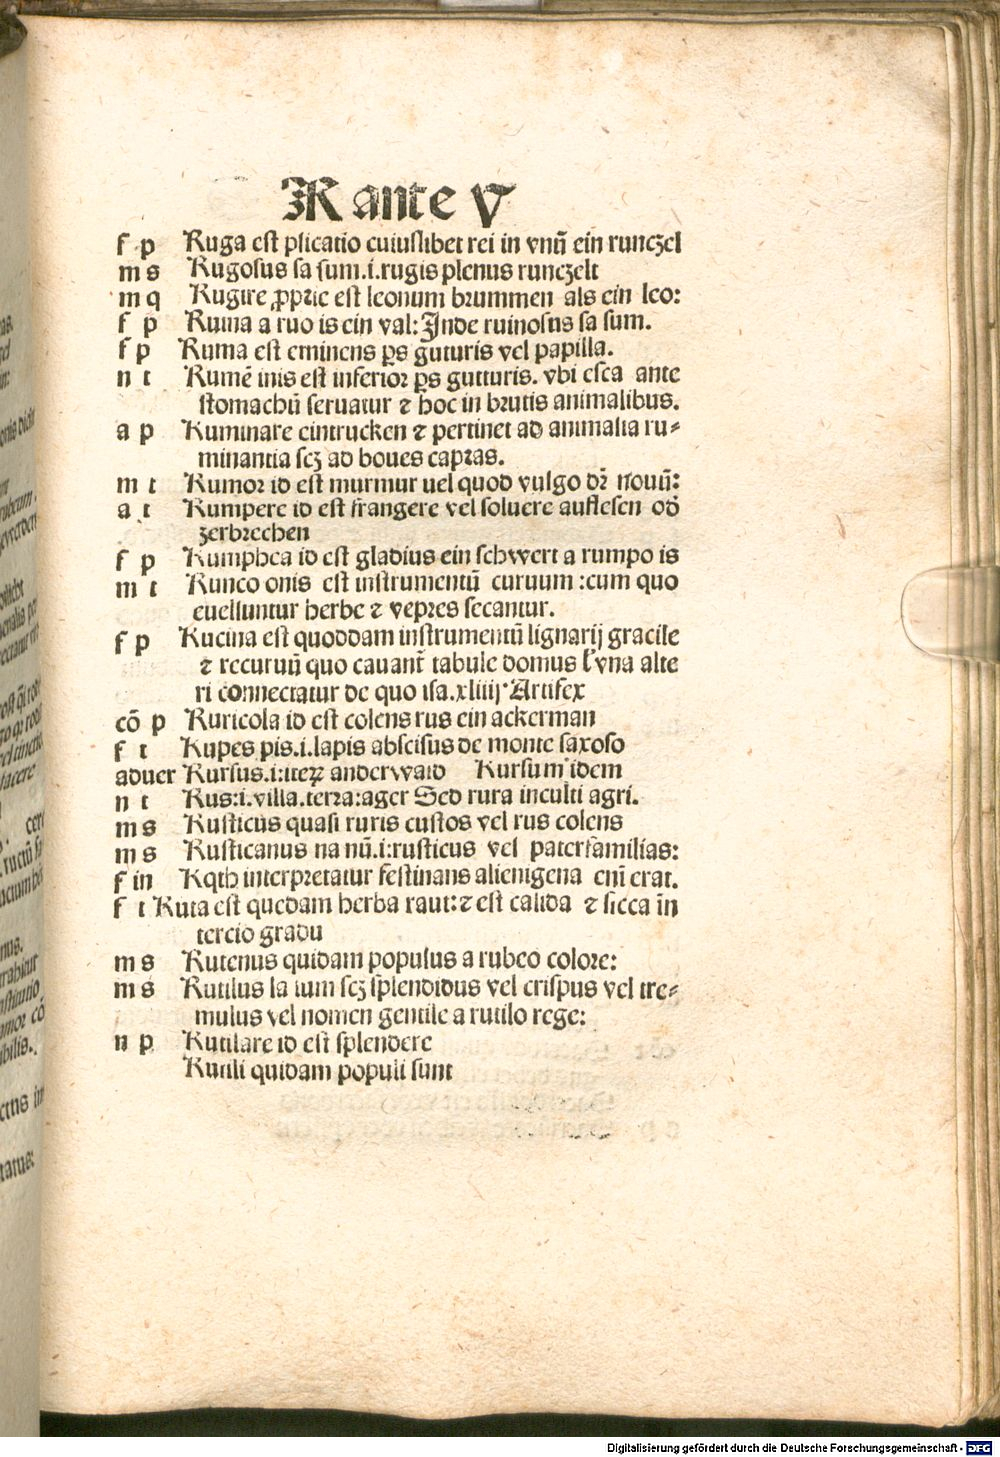 R ante V
f p Ruga est plicatio cuiuslibet rei in vnū ein runczel
m s Rugosus sa sum.i.rugis plenus runczelt
m q Rugire ꝓprie est leonum brummen als ein leo:
f p Ruina a ruo is ein val: Inde ruinosus sa sum.
f p Ruma est eminens ps guturis vel papilla.
n t Rumē inis est inferior ps gutturis. vbi esca ante
stomachū seruatur ⁊ hoc in brutis animalibus.
a p Ruminare eintrucken ⁊ pertinet ad animalia ru⸗
minantia scꝫ ad boues capras.
m t Rumor id est murmur uel quod vulgo dr̄ nouū:
a t Rumpere id est frangere vel soluere auflesen od̄
zerbrechen
f p Rumphea id est gladius ein schwert a rumpo is
m t Runco onis est instrumentū curuum :cum quo
euelluntur herbe ⁊ vepres secantur.
f p Rucina est quoddam instrumentū lignarij gracile
⁊ recuruū quo cauant̄ tabule domus vna alte
ri connectatur de quo isa.xliiij. Artifex
cō p Ruricola id est colens rus ein ackerman
f t Rupes pis.i.lapis abscisus de monte saxoso
aduer Rursus.i:iteꝝ anderwaid Rursum idem
n t Rus:i.villa.terra:ager Sed rura inculti agri.
m s Rusticus quasi ruris custos vel rus colens
m s Rusticanus na nū.i:rusticus vel paterfamilias:
f in Rqth interpretatur festinans alienigena enī erat.
f t Ruta est quedam herba raut:⁊ est calida ⁊ sicca in
tercio gradu
m s Rutenus quidam populus a rubeo colore:
m s Rutilus la lum scꝫ splendidus vel crispus vel tre⸗
mulus vel nomen gentile a rutilo rege:
n p Rutilare id est splendere
Rutili quidam populi sunt
Digitalisierung gefördert durch die Deutsche Forschungsgemeinschaft - DFG